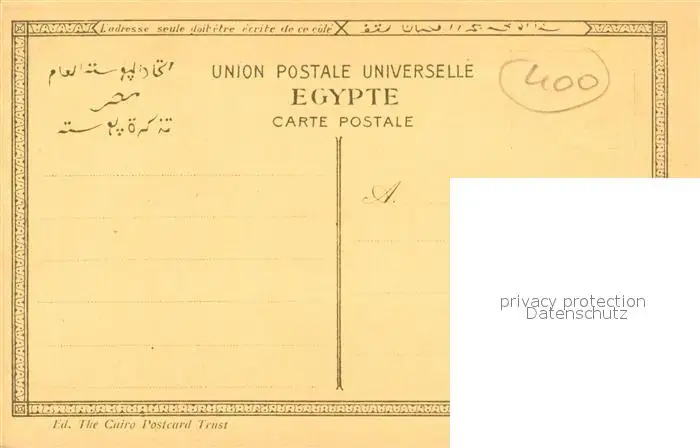 L'adresse seule doit être écrite de ce côté
اتحاد البوسته العام
مصر
تذكرة بوسته
UNION POSTALE UNIVERSELLE
EGYPTE
CARTE POSTALE
400
A.
privacy protection
Datenschutz
Ed. The Cairo Postcard Trust